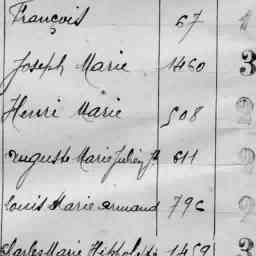 François 67 1
Joseph Marie 1460 3
Henri Marie 508 2
Auguste Marie Julien Je 611 2
Louis Marie Armand 796 2
Charles Marie Hippolyte 1459 3